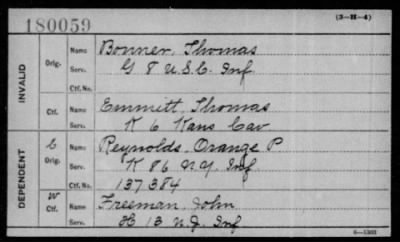 180059
(3-H-4)
INVALID
Orig.
Name
Bonner, Thomas
Serv.
G 8 U.S.C. Inf
Ctf. No.
Ctf.
Name
Emmett, Thomas
Serv.
K 6 Kans Cav
DEPENDENT
C
Orig.
Name
Reynolds, Orange P
Serv.
K 86 N.Y. Inf
Ctf. No.
137384
W
Ctf.
Name
Freeman, John
Serv.
H 13 N.J. Inf